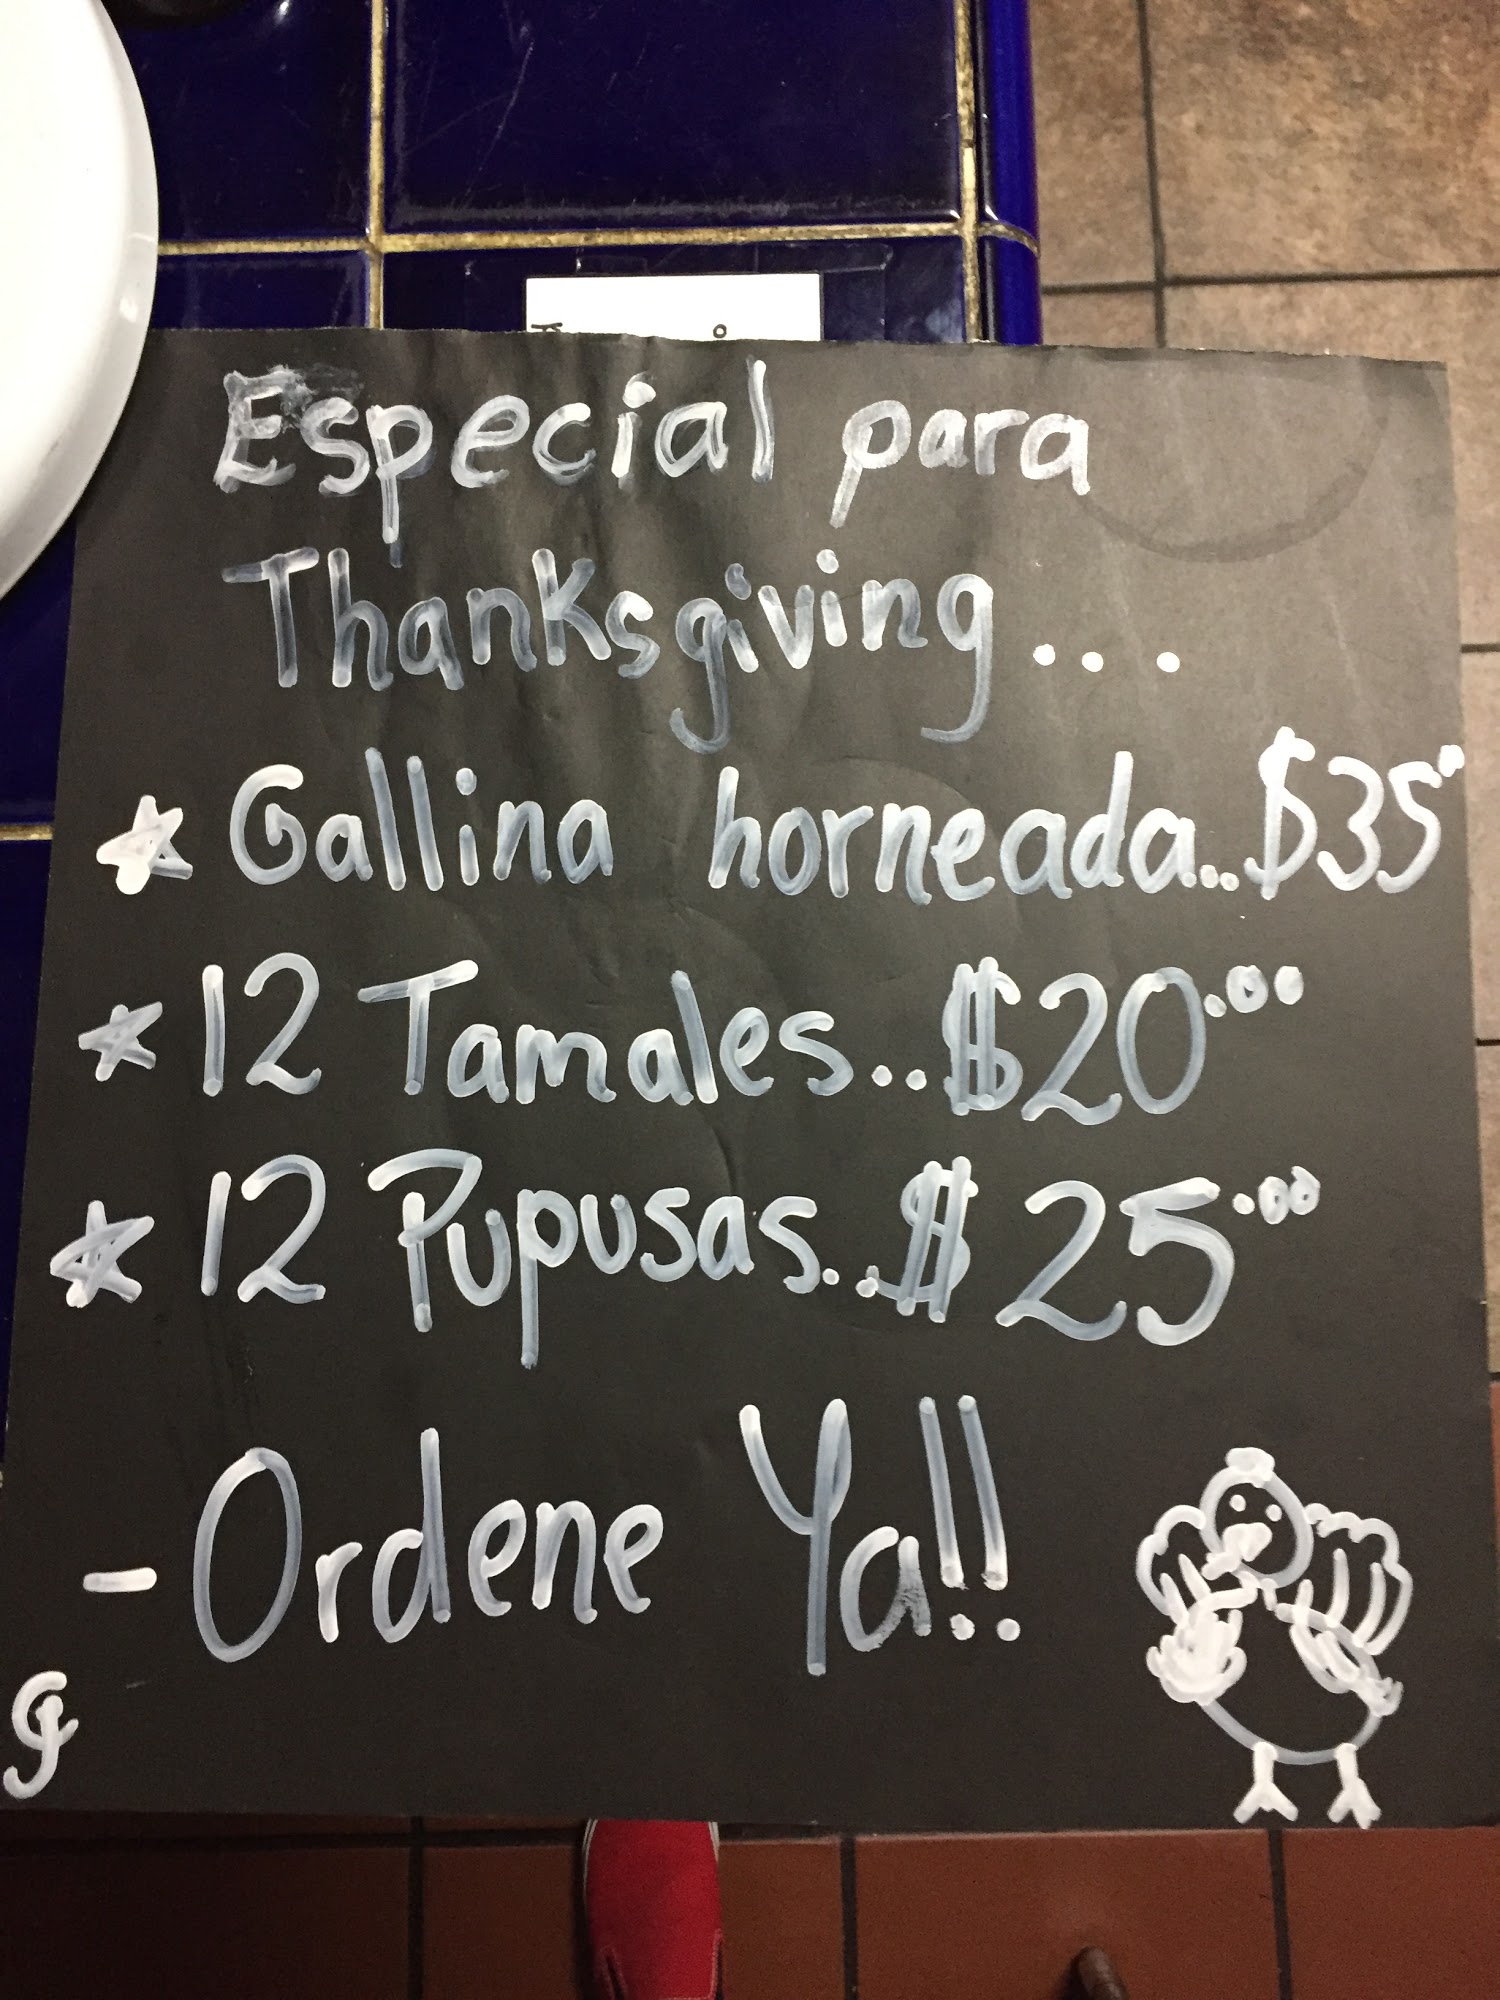 Especial para
Thanksgiving....
Gallina horneada...$35
12 Tamales..$20.00
12 Pupusas...$25.00
- Ordene Ya!!